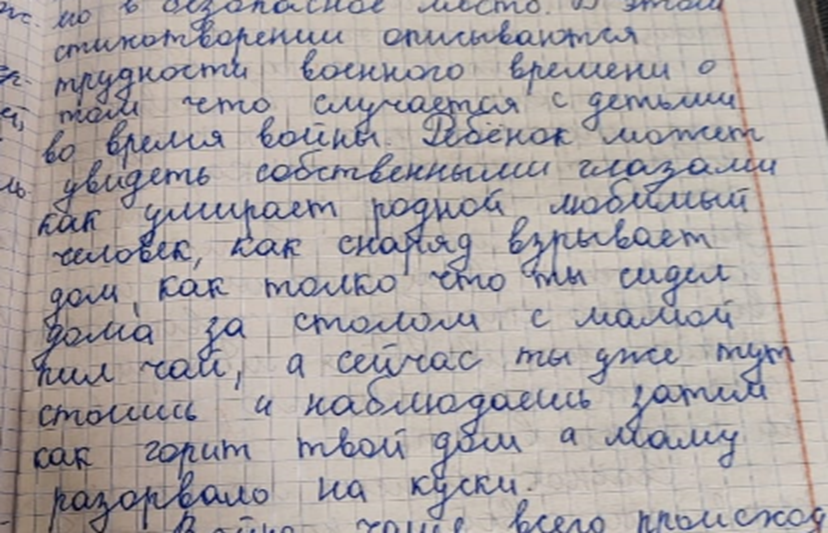 но в безопасное место. В этом
стихотворении описываются
трудности военного времени о
том что случается с детьми
во время войны. Ребёнок может
увидеть собственными глазами
как умирает родной любимый
человек, как снаряд взрывает
дом, как толко что ты сидел
дома за столом с мамой
пил чай, а сейчас ты уже тут
стоишь и наблюдаешь затим
как горит твой дом а маму
разорвало на куски.
Война чаще всего происход